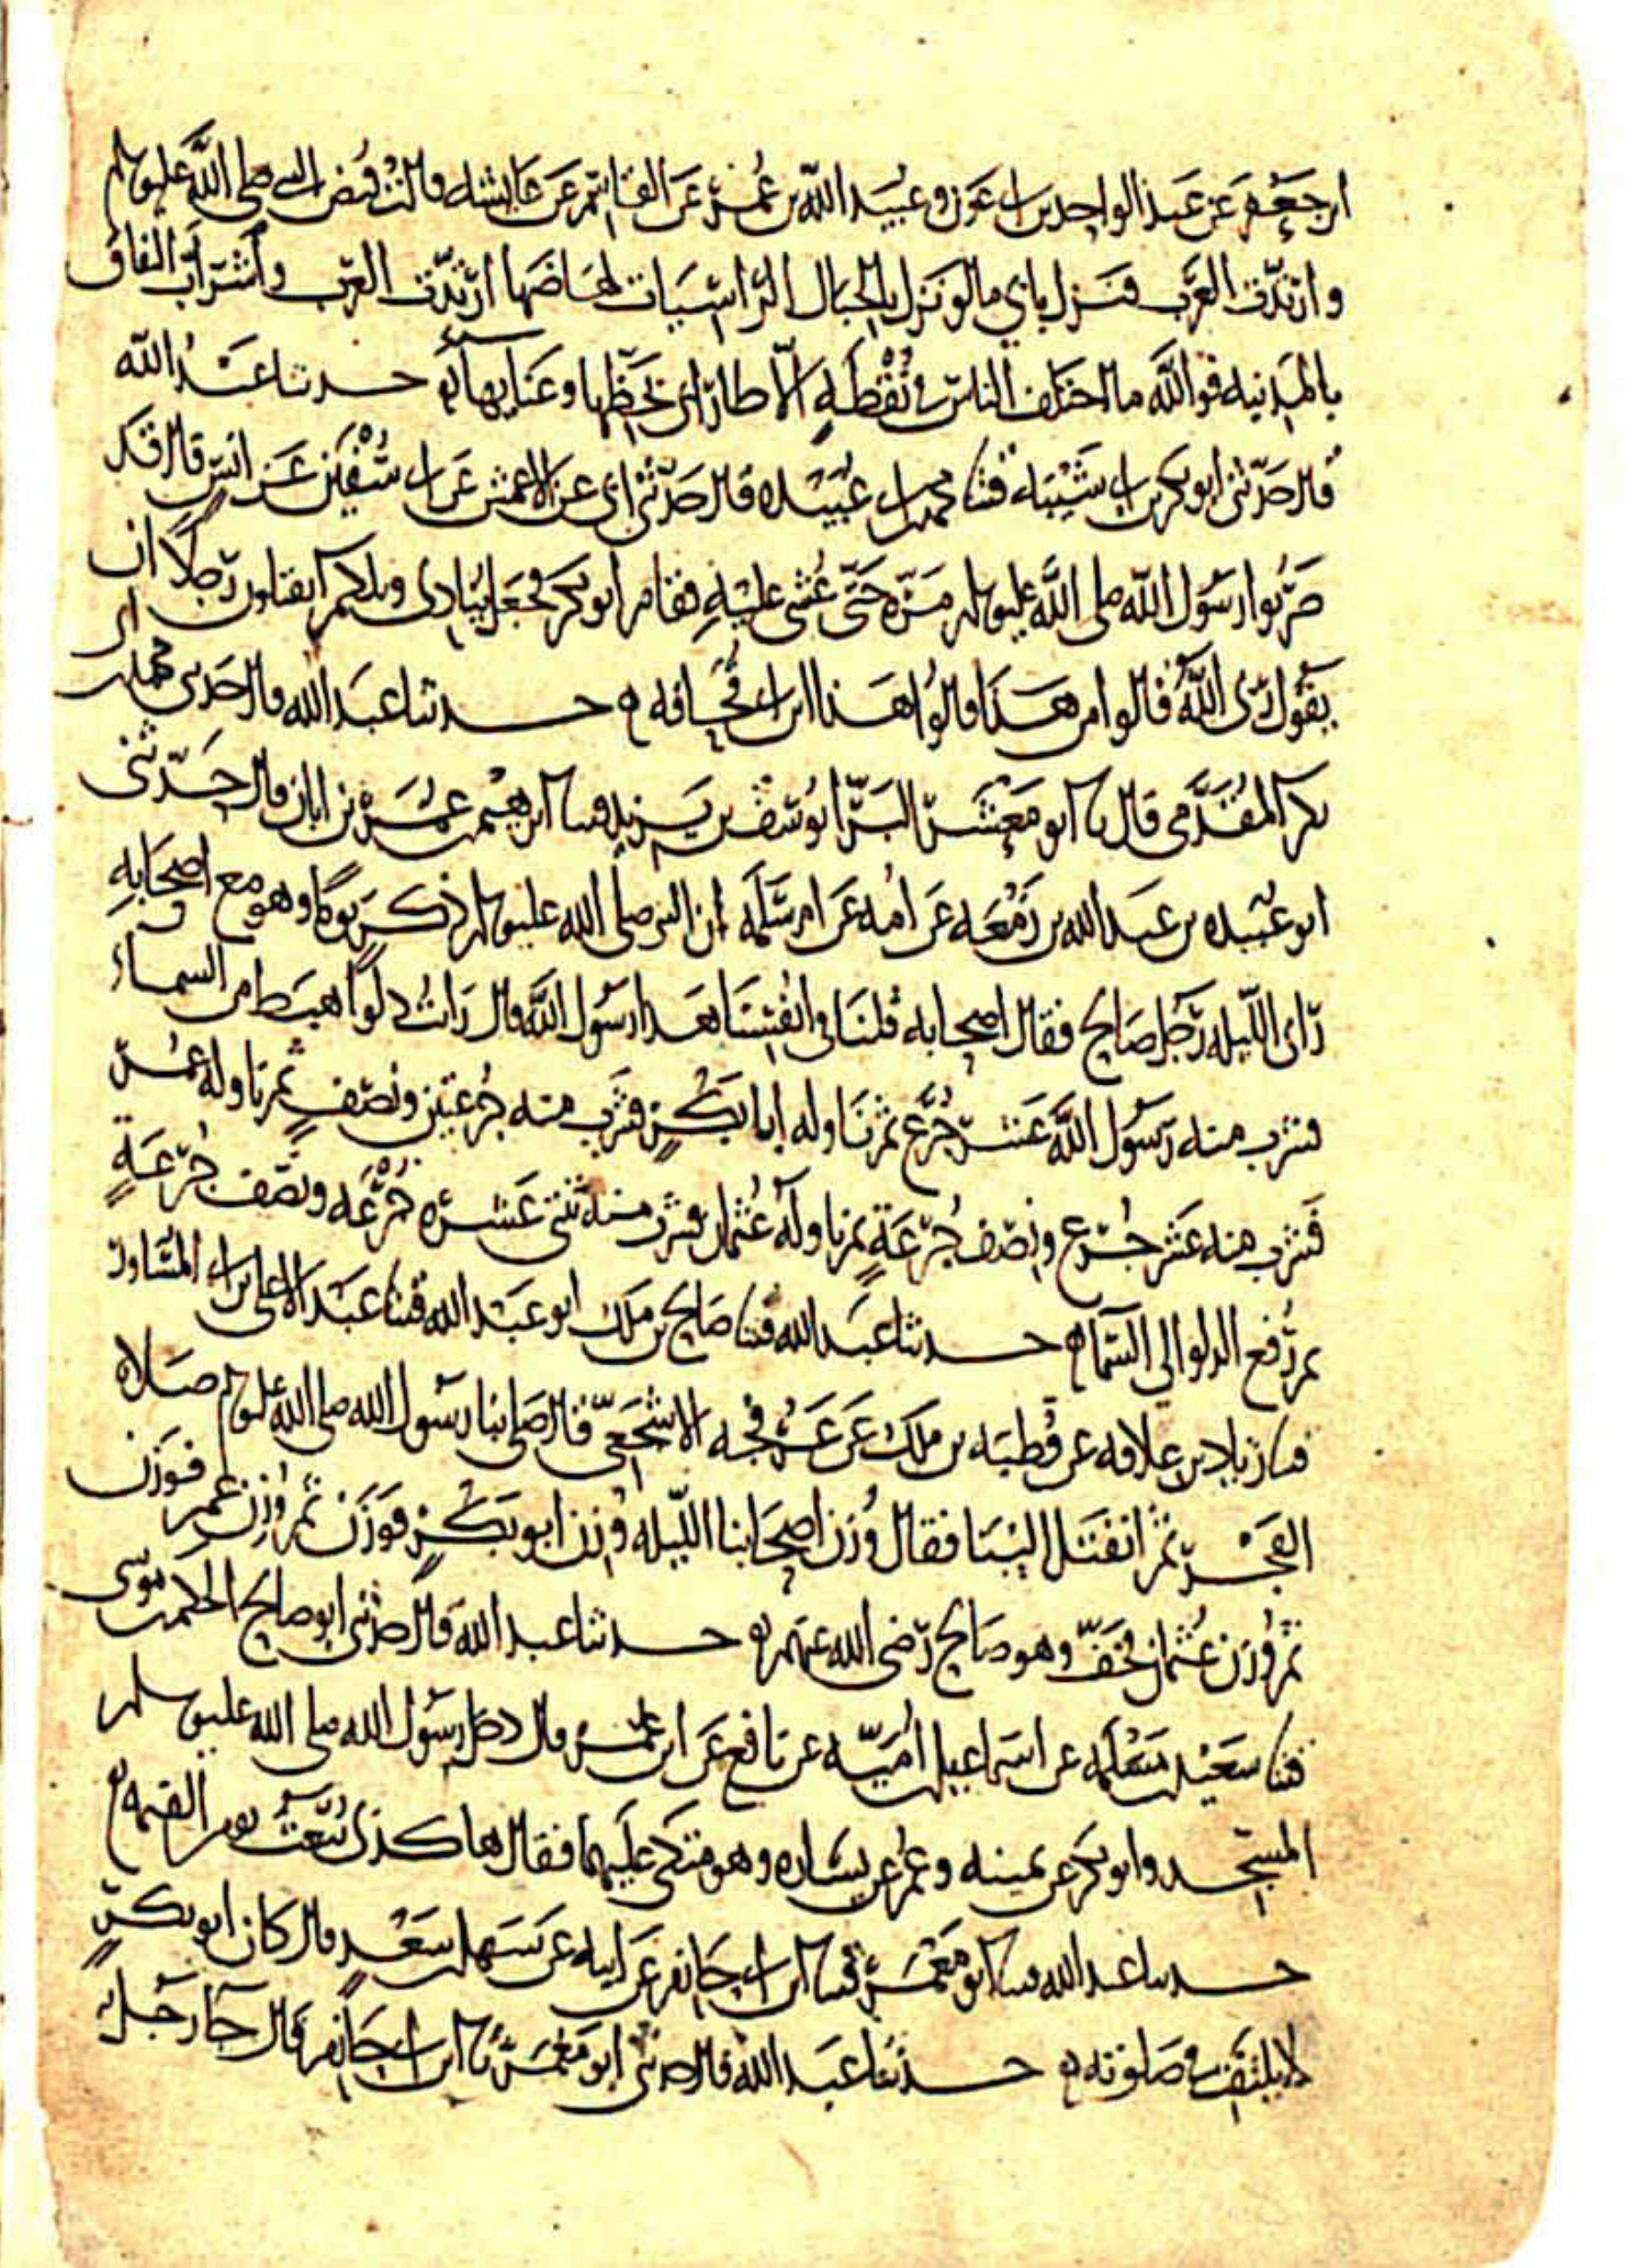 ابن جعفر عن عبد الواحد بن ابي عون وعبيد الله بن عمر عن القاسم عن عايشه قالت قبض النبي صلى الله عليه وسلم
وارتدت العرب فنزل بابي مالو نزل بالجبال الراسيات لهاضها ارتدت العرب واشراب النفاق
بالمدينه فوالله ما اختلف الناس في نقطه الا طار ابي بحظها وعنايها حدثنا عبد الله
قال حدثني ابو بكر بن ابي شيبه قثنا محمد بن ابي عبيده قال حدثني ابي عن الاعمش عن ابي سفين عن انس قال قد
ضربوا رسول الله صلى الله عليه وسلم مره حتى غشي عليه فقام ابو بكر فجعل ينادي ويلكم اتقتلون رجلا ان
يقول ربي الله قالوا من هذا قالوا هذا ابن ابي قحافه حدثنا عبد الله قال حدثني محمد بن ابي
بكر المقدمي قال نا ابو معشر البرا يوسف بن يزيد قثنا ابرهيم بن عمر بن ابان قال حدثني
ابو عبيده بن عبد الله بن زمعه عن امه عن ام سلمه ان النبي صلى الله عليه وسلم ذكر يوما وهو مع اصحابه
راى الليله رجل صالح فقال اصحابه قلنا في انفسنا هذا رسول الله قال رات دلوا هبط من السماء
فشرب منه رسول الله عشر جرع ثم ناوله ابا بكر فشرب منه جرعتين ونصف ثم ناوله عمر
فشرب منه عشر جرع ونصف جرعة ثم ناوله عثمان فشرب منه ثنتي عشره جرعه ونصف جرعة
ثم رفع الدلو الى السماء حدثنا عبد الله قثنا صالح بن ملك ابو عبد الله قثنا عبد الاعلى بن ابي المساور
قثنا زياد بن علاقه عن قطبه بن ملك عن عرفجه الاشجعي قال صلى بنا رسول الله صلى الله عليه وسلم صلاه
الفجر ثم انفتل الينا فقال وزن اصحابنا الليله وزن ابو بكر فوزن ثم وزن عمر فوزن
ثم وزن عثمان فخف وهو صالح رضي الله عنهم حدثنا عبد الله قال حدثني ابو صالح الحكم بن موسى
قثنا سعيد بن مسلمه عن اسماعيل بن اميه عن نافع عن ابن عمر قال دخل رسول الله صلى الله عليه وسلم
المسجد وابو بكر عن يمينه وعمر عن يساره وهو متكي عليهما فقال هاكذي نبعث يوم القيمه
حدثنا عبد الله قثنا ابو معمر قثنا ابن ابي حازم عن ابيه عن سهل بن سعد قال كان ابو بكر
لا يلتفت في صلوته حدثنا عبد الله قال حدثني ابو معمر نا ابن ابي حازم قال جا رجل